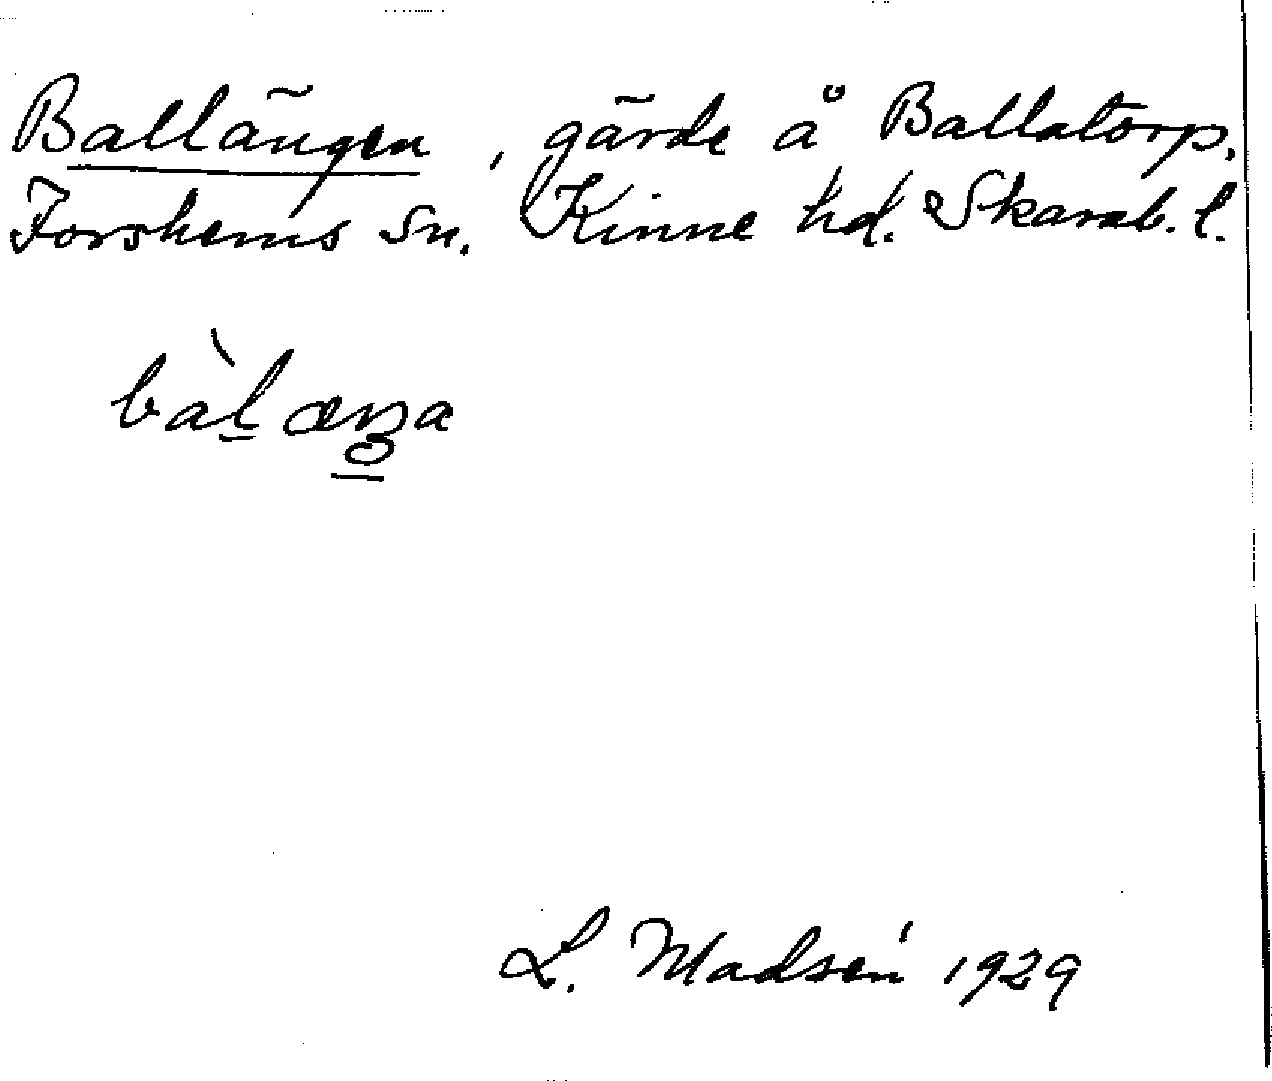 Ballängen, gärde å Ballatorp.
Forshems sn. Kinne hd. Skarab. l.
bàl̠æŋa
L. Madsén 1929